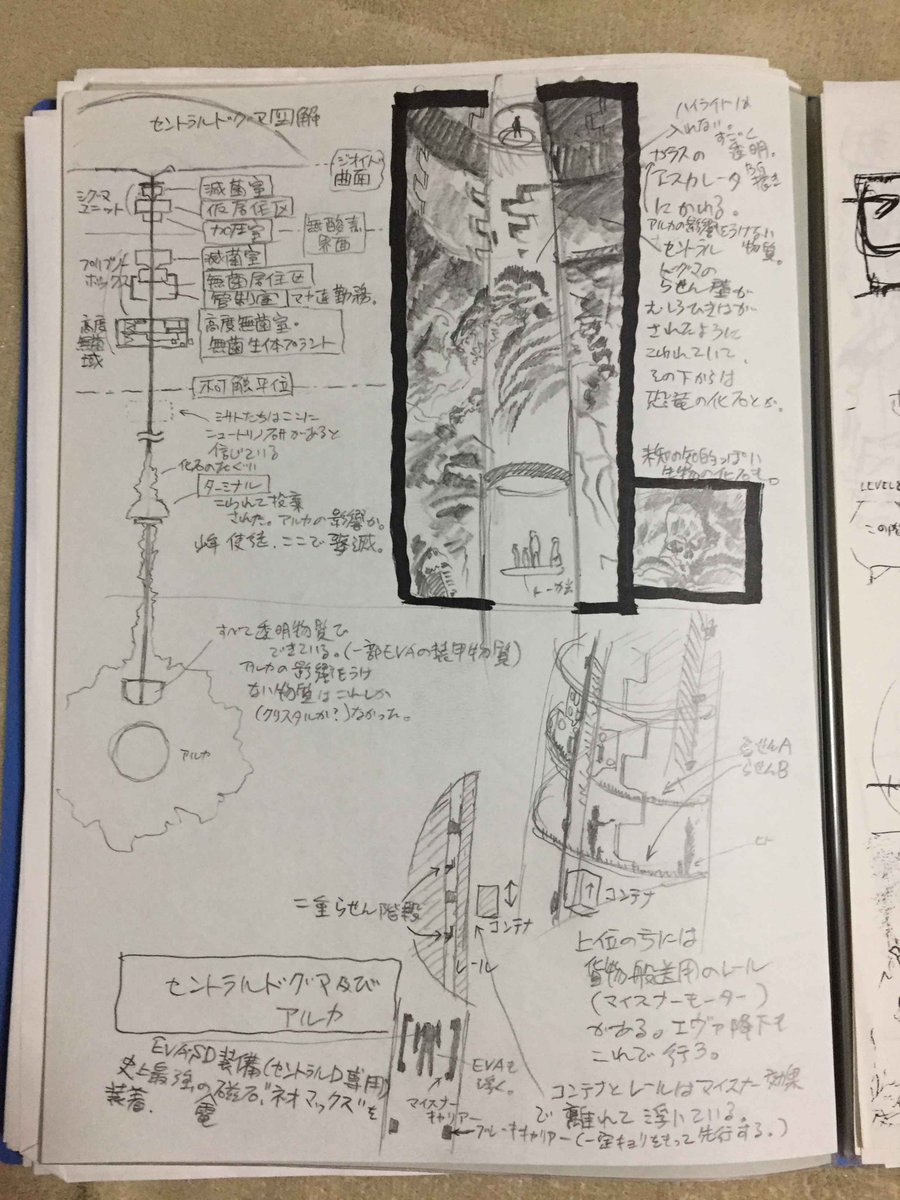 セントラルドグマ図解
ジオイド
曲面
シグマ
ユニット
滅菌室
仮居住区
加圧室
無酸素
界面
プリブノー
ボックス
滅菌室
無菌居住区
管制室
マナ達勤務。
高度
無菌
域
高度無菌室・
無菌生体プラント
不可触平位
ミサトたちはここに
ニュートリノ研があると
信じている
化石のたぐい
ターミナル
こわれて投棄
された。アルカの影響か。
使徒、ここで
すべて透明物質で
できている。(一部EVAの装甲物質)
アルカの影響をうけ
ない物質はこれしか
(クリスタルか?)なかった。
アルカ
ハイライトは
入れない。すごく
ガラスの 透明。
エスカレータ
にかわる。
アルカの影響をうけない
物質。
セントラル
ドグマの
らせん壁が
むしろひきはが
されたように
こわれていて、
その下からは
恐竜の化石とか。
未知の知的っぽい
生物の化石も。
らせんA
らせんB
ヒト
コンテナ
二重らせん階段
コンテナ
レール
上位のうちには
貨物般送用のレール
(マイスナーモーター)
がある。エヴァ降下も
これで行う。
セントラルドグマ及び
アルカ
EVA・SD装備(セントラルD専用)
史上最強の電磁石、"ネオマックス"を
装着、
EVAも
マイスナー
キャリアー
コンテナとレールはマイスナー効果
で離れて浮いている。
ブレーキキャリアー(一定キョリをもって先行する。)
LEVEL
この階